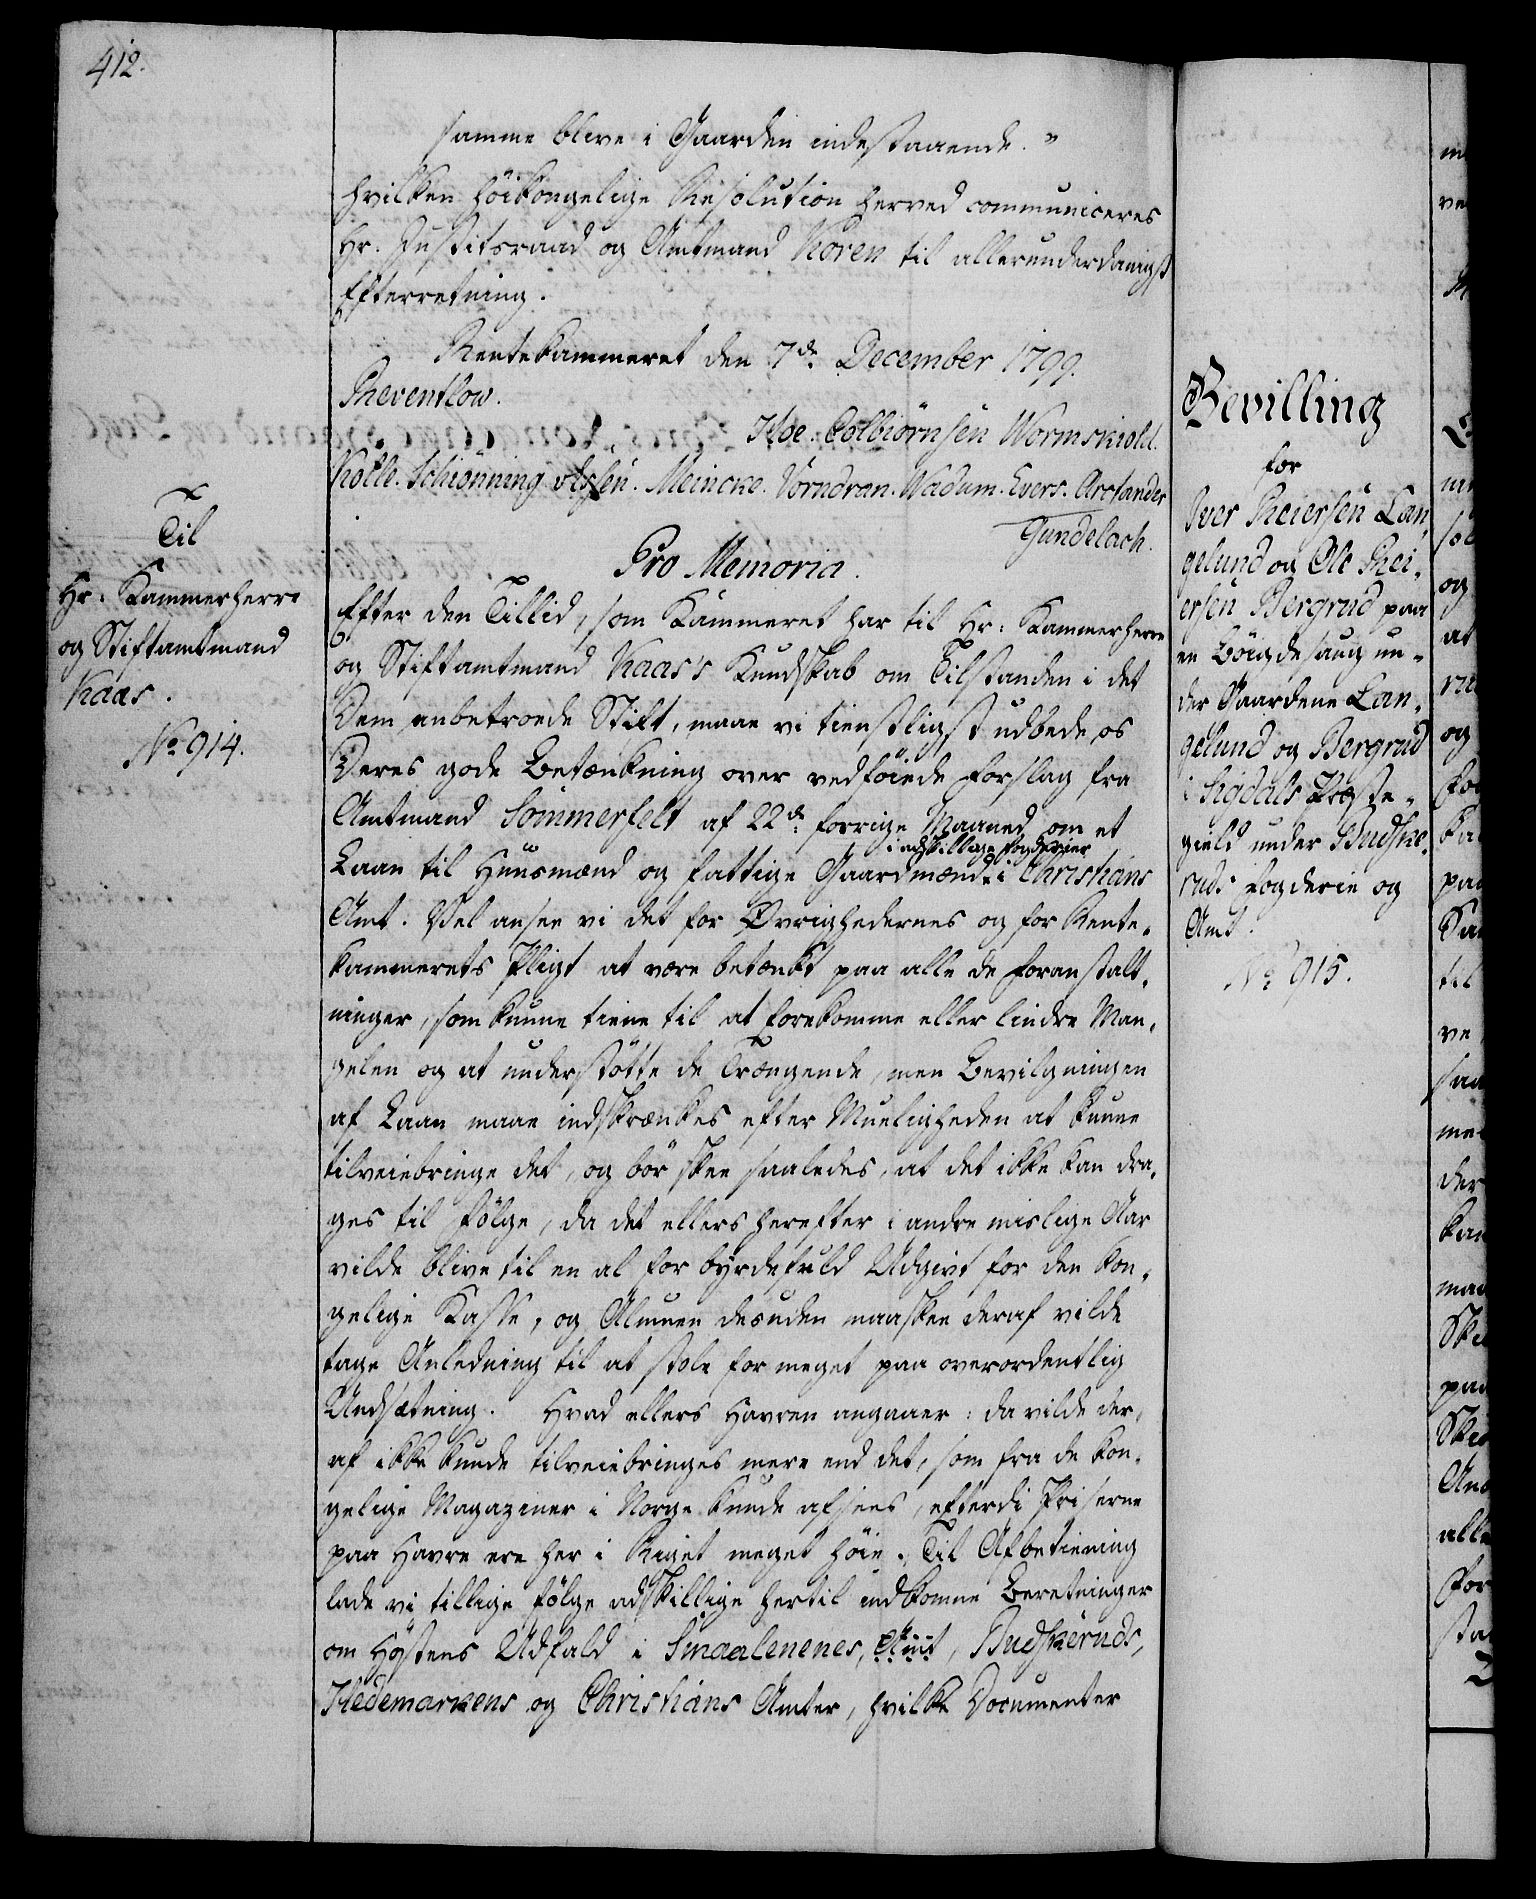 412.
samme blive i Gaarden indestaaende."
Hvilken höikongelige Resolution herved communiceres
Hr. Justitsraad og Amtmand Koren til allerunderdanigst
Efterretning.
Rentekammeret den 7de December 1799.
Reventlow.
Hoe. Colbiörnsen Wormskiold.
Kölle. Schiönning Olsen. Meincke. Vorndran. Wadum. Evers. Arctander
Gundelach.
Til
Hr. Kammerherre
og Stiftamtmand
Kaas.
No 914.
Pro Memoria.
Efter den Tillid, som Kammeret har til Hr. Kammerherre
og Stiftamtmand Kaas's Kundskab om Tilstanden i det
Dem anbetroede Stift, maae vi tienstligst udbede os
Deres gode Betænkning over vedföiede Forslag fra
Amtmand Sommerfelt af 22de forrige Maaned om et
i adskillige Fogderier
Laan til Huusmænd og fattige Gaardmænd i Christians
Amt. Vel ansee vi det for Øvrighedernes og for Rente-
kammerets Pligt at være betænkt paa alle de Foranstalt-
ninger, som kunne tiene til at forekomme eller lindre Man-
gelen og at understötte de Trængende, men Bevilgningen
af Laan maae indskrænkes efter Mueligheden at kunne
tilveiebringe det, og bör skee saaledes, at det ikke kan dra-
ges til Fölge, da det ellers herefter i andre mislige Aar
vilde blive til en al for byrdefuld Udgivt for den kon-
gelige Kasse, og Almuen desuden maaskee deraf vilde
tage Anledning til at stole for meget paa overordentlig
Undsætning. Hvad ellers Havren angaaer: da vilde der-
af ikke kunde tilveiebringes mere end det, som fra de kon-
gelige Magaziner i Norge kunde afsees, efterdi Priserne
paa Havre ere her i Riget meget höie. Til Afbetiening
lade vi tillige fölge adskillige hertil indkomne Beretninger
om Höstens Udfald i Smaalenenes, Amt, Budskeruds,
Hedemarkens og Christians Amter, hvilke Documenter
Bevilling
for
Iver Reiersen Lan-
gelund og Ole Rei-
ersen Bergrud paa
en Böigdesaug un-
der Gaardene Lan-
gelund og Bergrud
i Sigdals Præste-
gield under Budske-
ruds Fogderie og
Amt.
No 915.